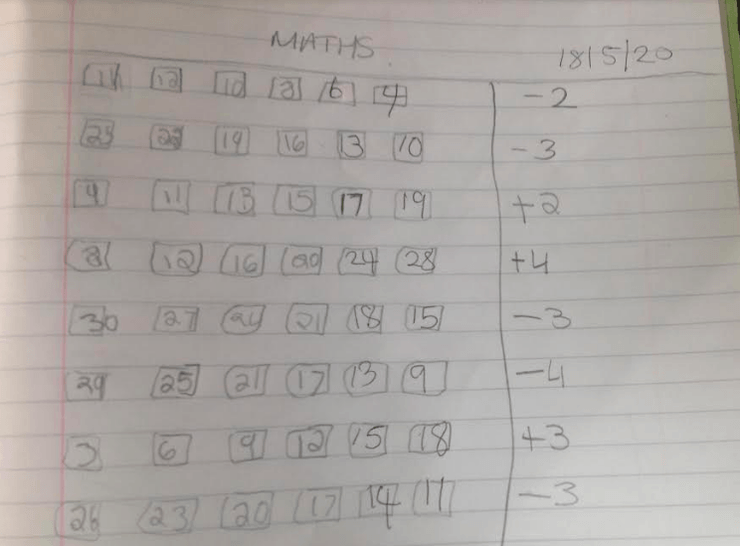 MATHS. 18/5/20
14 12 10 8 6 4 -2
25 22 19 16 13 10 -3
9 11 13 15 17 19 +2
8 12 16 20 24 28 +4
30 27 24 21 18 15 -3
29 25 21 17 13 9 -4
3 6 9 12 15 18 +3
26 23 20 17 14 11 -3